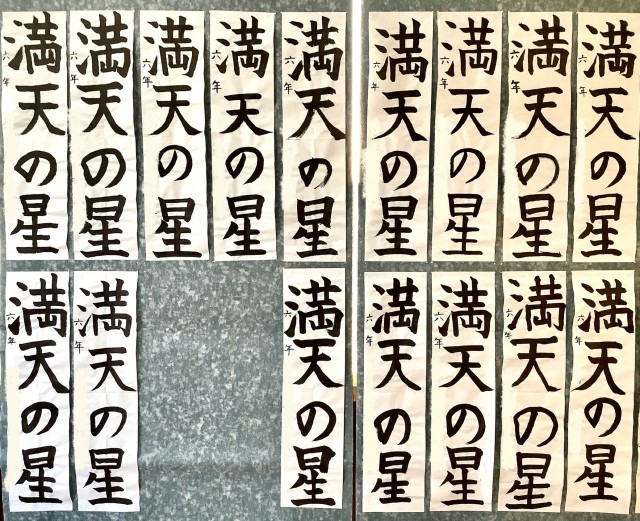 満天の星
六年
満天の星
六年
満天の星
六年
満天の星
六年
満天の星
六年
満天の星
六年
満天の星
六年
満天の星
六年
満天の星
六年
満天の星
六年
満天の星
六年
満天の星
六年
満天の星
六年
満天の星
六年
満天の星
六年
満天の星
六年